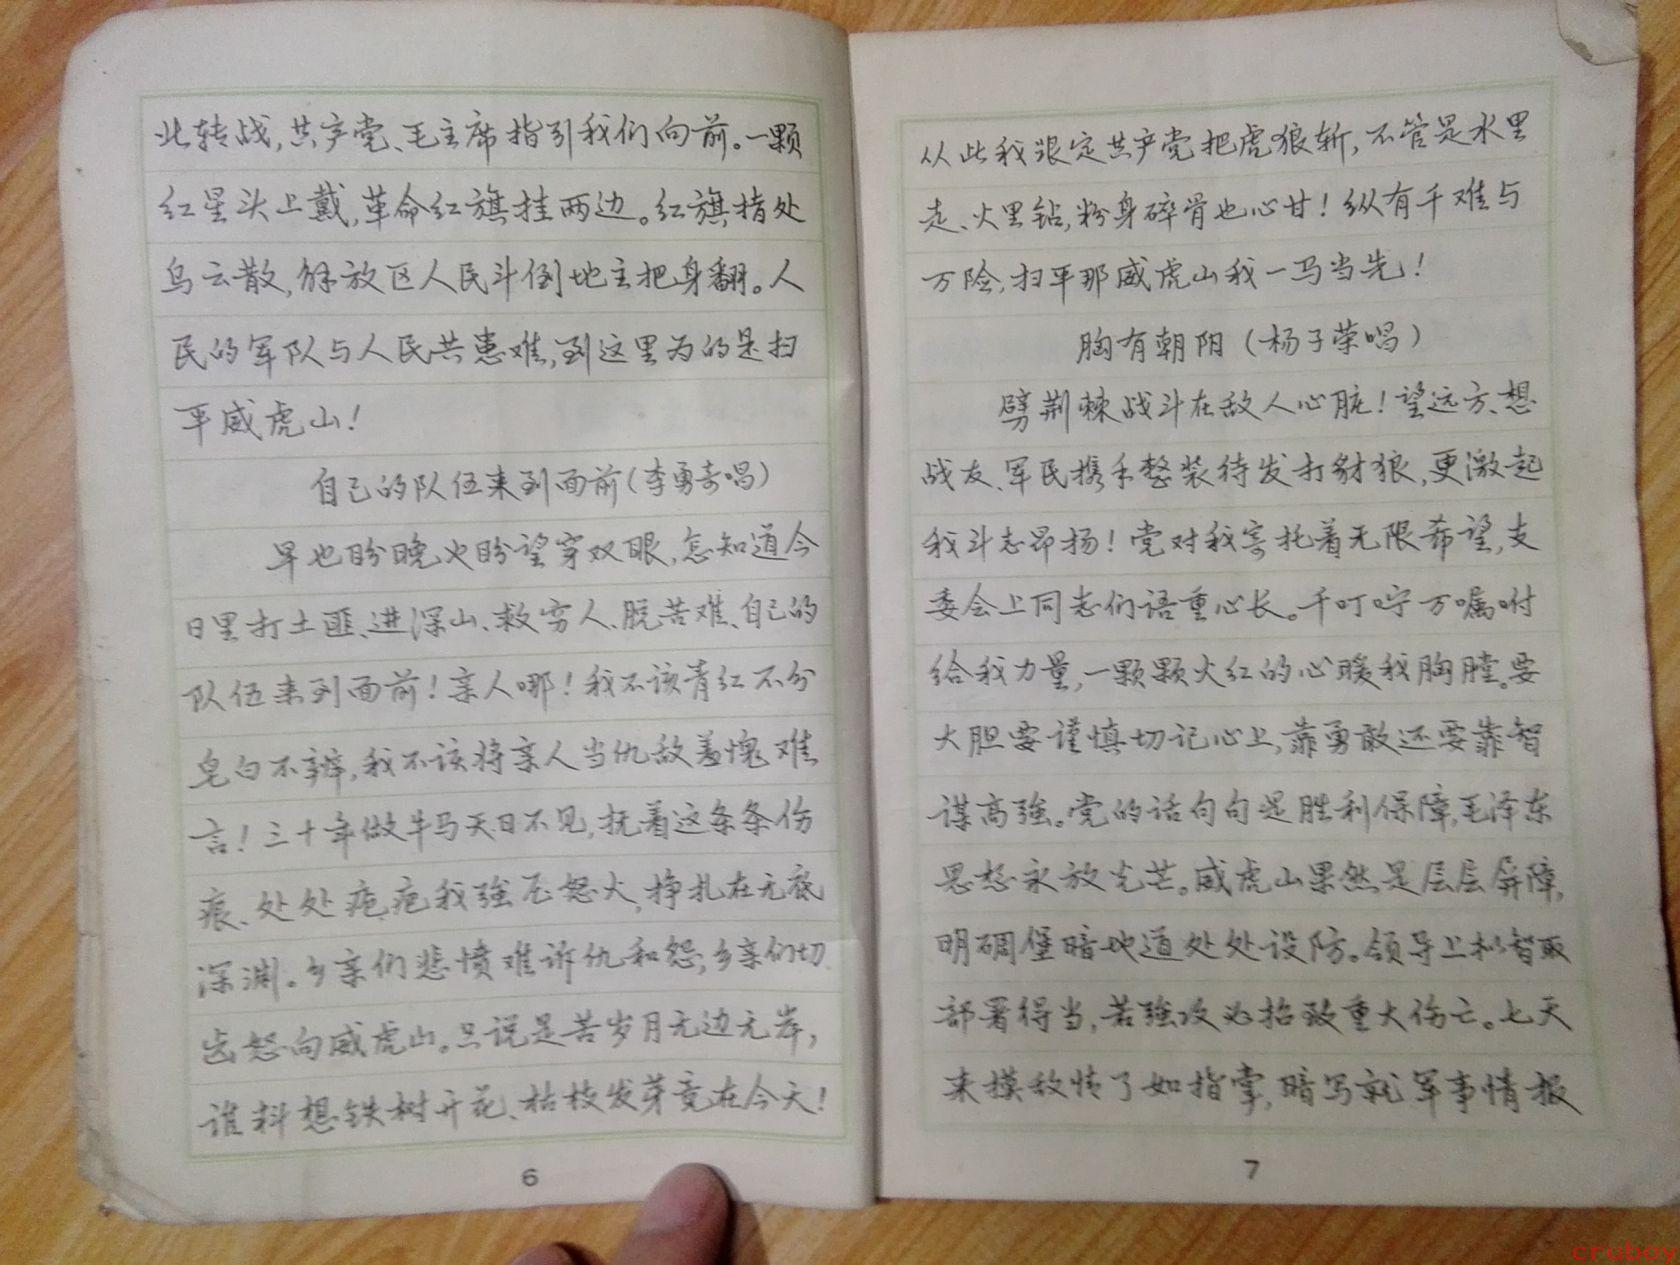 北转战,共产党、毛主席指引我们向前。一颗
红星头上戴,革命红旗挂两边。红旗指处
乌云散,解放区人民斗倒地主把身翻。人
民的军队与人民共患难,到这里为的是扫
平威虎山!
自己的队伍来到面前(李勇奇唱)
早也盼晚也盼望穿双眼,怎知道今
日里打土匪、进深山、救穷人、脱苦难、自己的
队伍来到面前!亲人哪!我不该青红不分
皂白不辨,我不该将亲人当仇敌羞愧难
言!三十年做牛马天日不见,抚着这条条伤
痕、处处疤疤我强压怒火,挣扎在无底
深渊。乡亲们悲愤难诉仇和怨,乡亲们切
齿怒向威虎山。只说是苦岁月无边无岸,
谁料想铁树开花、枯枝发芽竟在今天!
6
从此我跟定共产党把虎狼斩,不管是水里
走、火里钻,粉身碎骨也心甘!纵有千难与
万险,扫平那威虎山我一马当先!
胸有朝阳(杨子荣唱)
劈荆棘战斗在敌人心脏!望远方、想
战友、军民携手整装待发打豺狼,更激起
我斗志昂扬!党对我寄托着无限希望,支
委会上同志们语重心长。千叮咛万嘱咐
给我力量,一颗颗火红的心暖我胸膛。要
大胆要谨慎切记心上,靠勇敢还要靠智
谋高强。党的话句句是胜利保障,毛泽东
思想永放光芒。威虎山果然是层层屏障,
明碉堡暗地道处处设防。领导上拟智取
部署得当,若强攻必招致重大伤亡。七天
来摸敌情了如指掌,暗写就军事情报
7
crubov